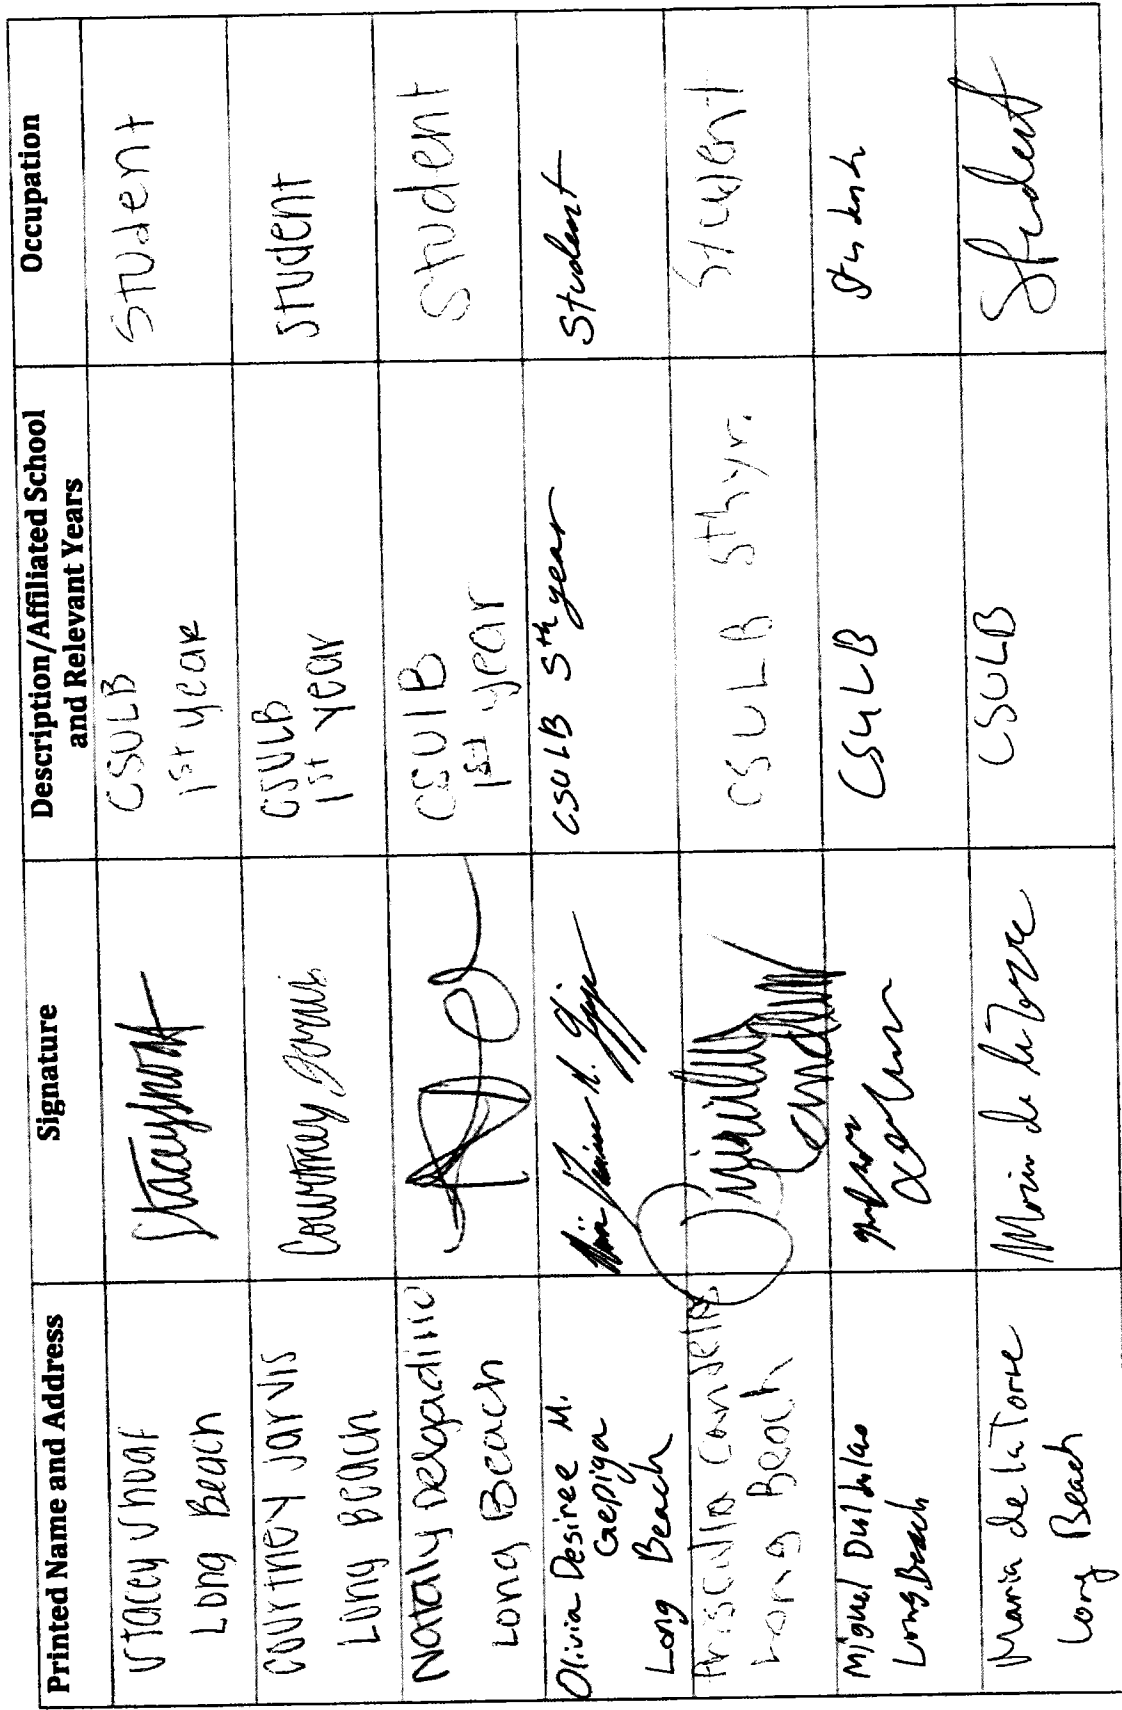 Printed Name and Address
Signature
Description/Affiliated School
and Relevant Years
Occupation
Stacey Shoaf
Long Beach
CSULB
1st year
Student
Courtney Jarvis
Long Beach
Courtney Jarvis
CSULB
1st year
Student
Nataly Delgadillo
Long Beach
CSULB
1st year
Student
Olivia Desiree M.
Gepiga
Long Beach
CSULB 5th year
Student
Long Beach
CSULB 5th yr.
Student
Miguel
Long Beach
CSULB
Student
Maria de la Torre
Long Beach
Maria de la Torre
CSULB
Student